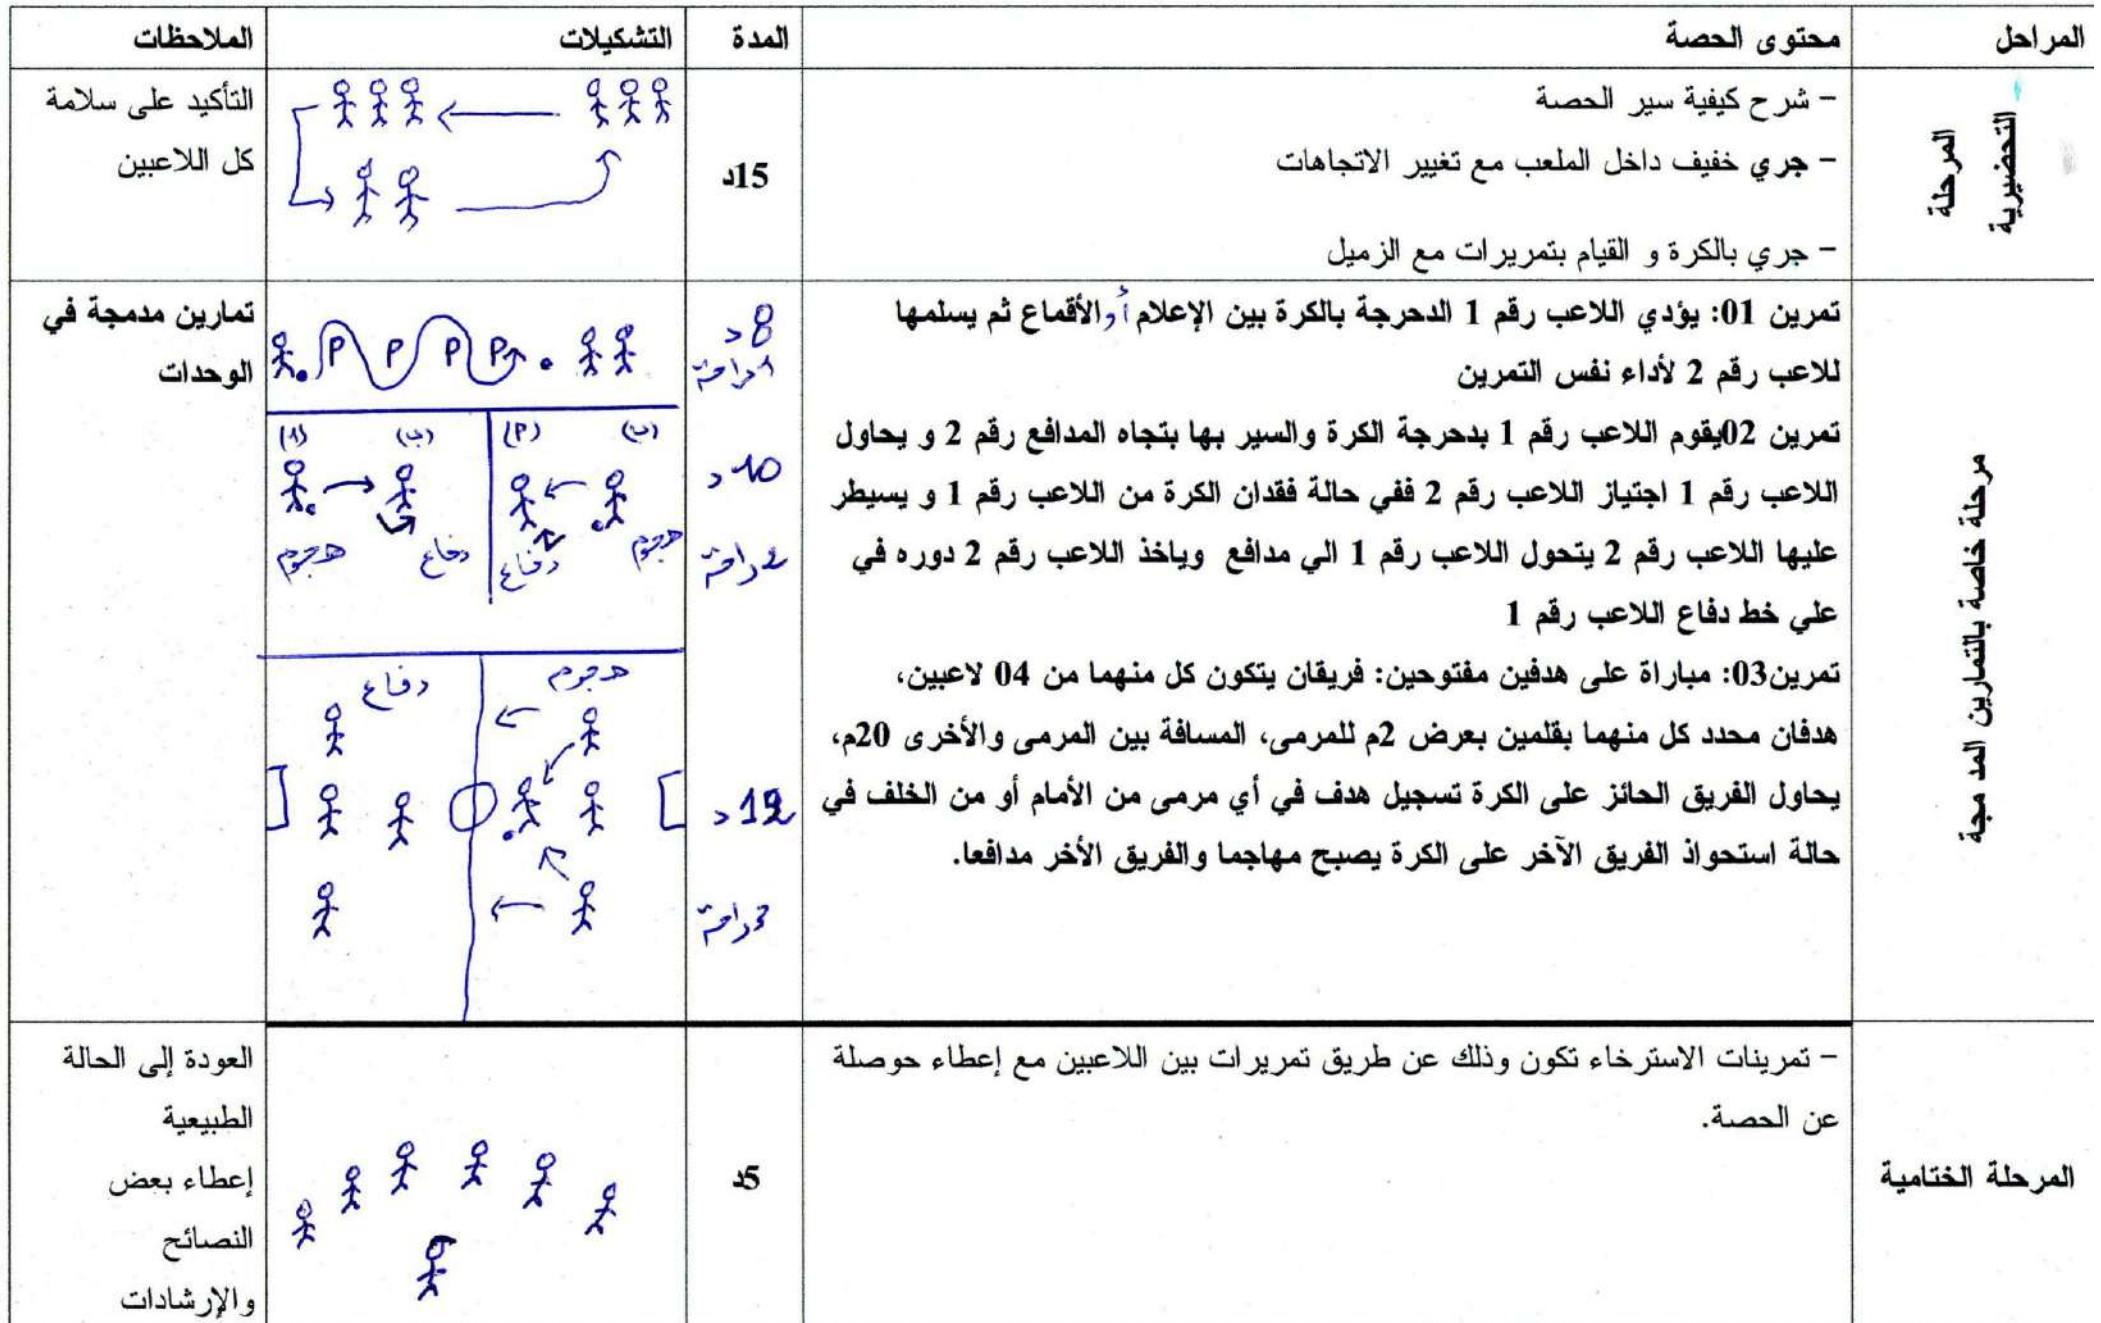 المراحل
محتوى الحصة
المدة
التشكيلات
الملاحظات
المرحلة
التحضيرية
– شرح كيفية سير الحصة
– جري خفيف داخل الملعب مع تغيير الاتجاهات
– جري بالكرة و القيام بتمريرات مع الزميل
15د
التأكيد على سلامة
كل اللاعبين
مرحلة خاصة بالتمارين المد مجة
تمرين 01: يؤدي اللاعب رقم 1 الدحرجة بالكرة بين الإعلام أو الأقماع ثم يسلمها
للاعب رقم 2 لأداء نفس التمرين
تمرين 02يقوم اللاعب رقم 1 بدحرجة الكرة والسير بها بتجاه المدافع رقم 2 و يحاول
اللاعب رقم 1 اجتياز اللاعب رقم 2 ففي حالة فقدان الكرة من اللاعب رقم 1 و يسيطر
عليها اللاعب رقم 2 يتحول اللاعب رقم 1 الي مدافع وياخذ اللاعب رقم 2 دوره في
علي خط دفاع اللاعب رقم 1
تمرين03: مباراة على هدفين مفتوحين: فريقان يتكون كل منهما من 04 لاعبين،
هدفان محدد كل منهما بقلمين بعرض 2م للمرمى، المسافة بين المرمى والأخرى 20م،
يحاول الفريق الحائز على الكرة تسجيل هدف في أي مرمى من الأمام أو من الخلف في
حالة استحواذ الفريق الآخر على الكرة يصبح مهاجما والفريق الأخر مدافعا.
8د
1د راحة
10د
2د راحة
12د
3د راحة
(ب)
(أ)
(ب)
(أ)
هجوم
دفاع
دفاع
هجوم
هجوم
دفاع
تمارين مدمجة في
الوحدات
المرحلة الختامية
– تمرينات الاسترخاء تكون وذلك عن طريق تمريرات بين اللاعبين مع إعطاء حوصلة
عن الحصة.
5د
العودة إلى الحالة
الطبيعية
إعطاء بعض
النصائح
والإرشادات